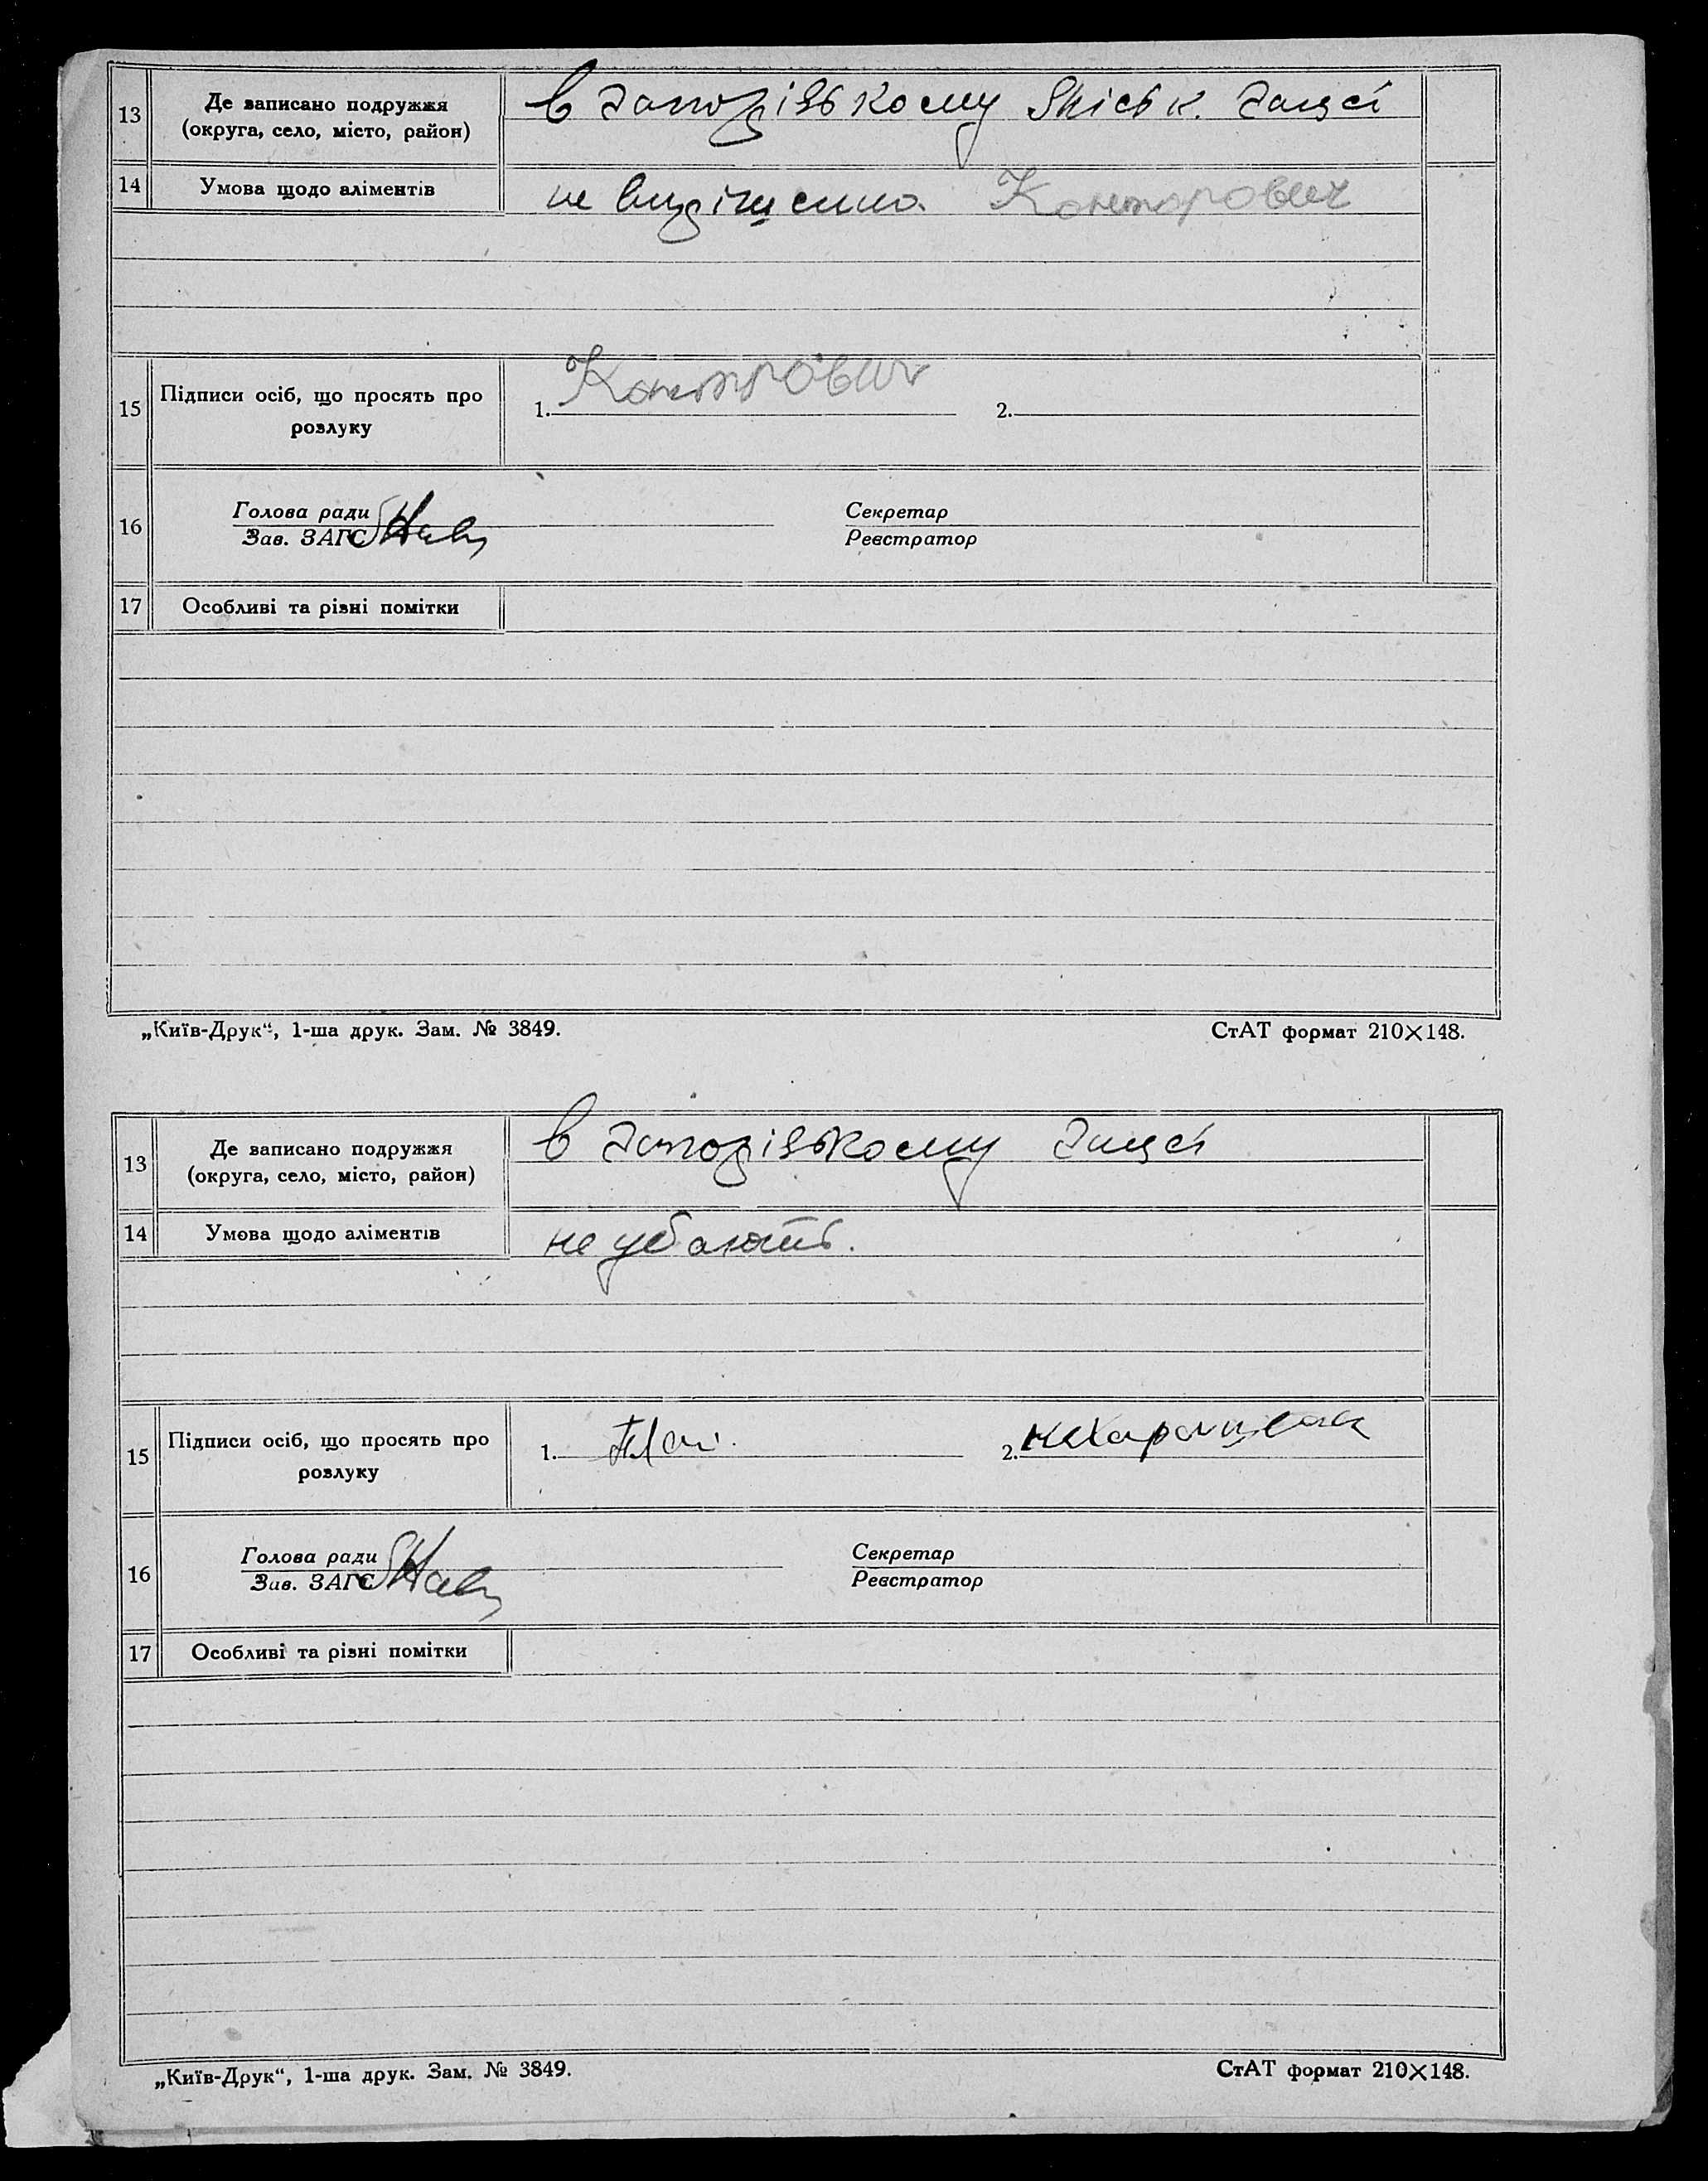 13 Де записано подружжя
(округа, село, місто, район)
в Запорізькому Міськ. Загсі
14 Умова щодо аліментів
не вирішено. Конторович
15 Підписи осіб, що просять про
розлуку
1. Конторович 2.
16 Голова ради Секретар
Зав. ЗАГС Реєстратор
17 Особливі та різні помітки
„Київ-Друк“, 1-ша друк. Зам. № 3849. СтАТ формат 210×148.
13 Де записано подружжя
(округа, село, місто, район)
в Запорізькому Загсі
14 Умова щодо аліментів
не
15 Підписи осіб, що просять про
розлуку
1. 2.
16 Голова ради Секретар
Зав. ЗАГС Реєстратор
17 Особливі та різні помітки
„Київ-Друк“, 1-ша друк. Зам. № 3849. СтАТ формат 210×148.